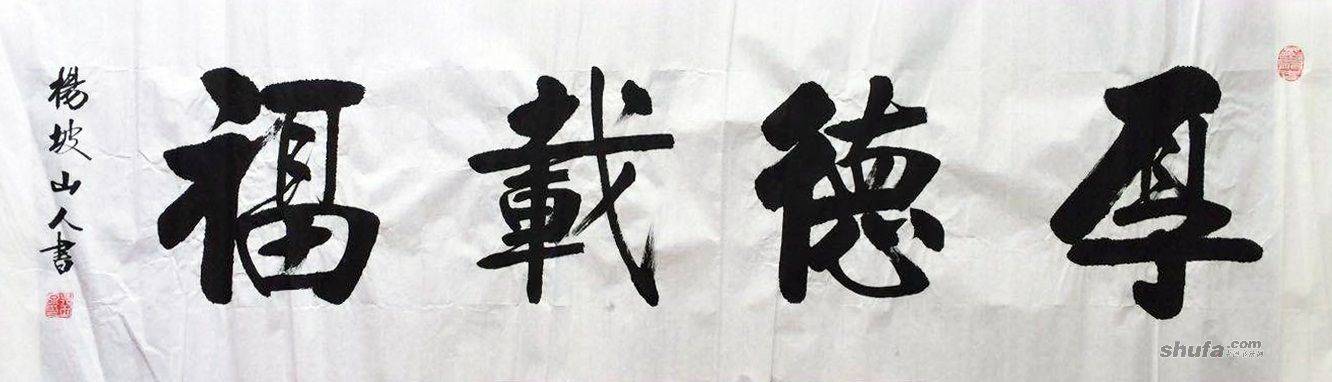 厚德載福
楊坡山人書
shufa.com